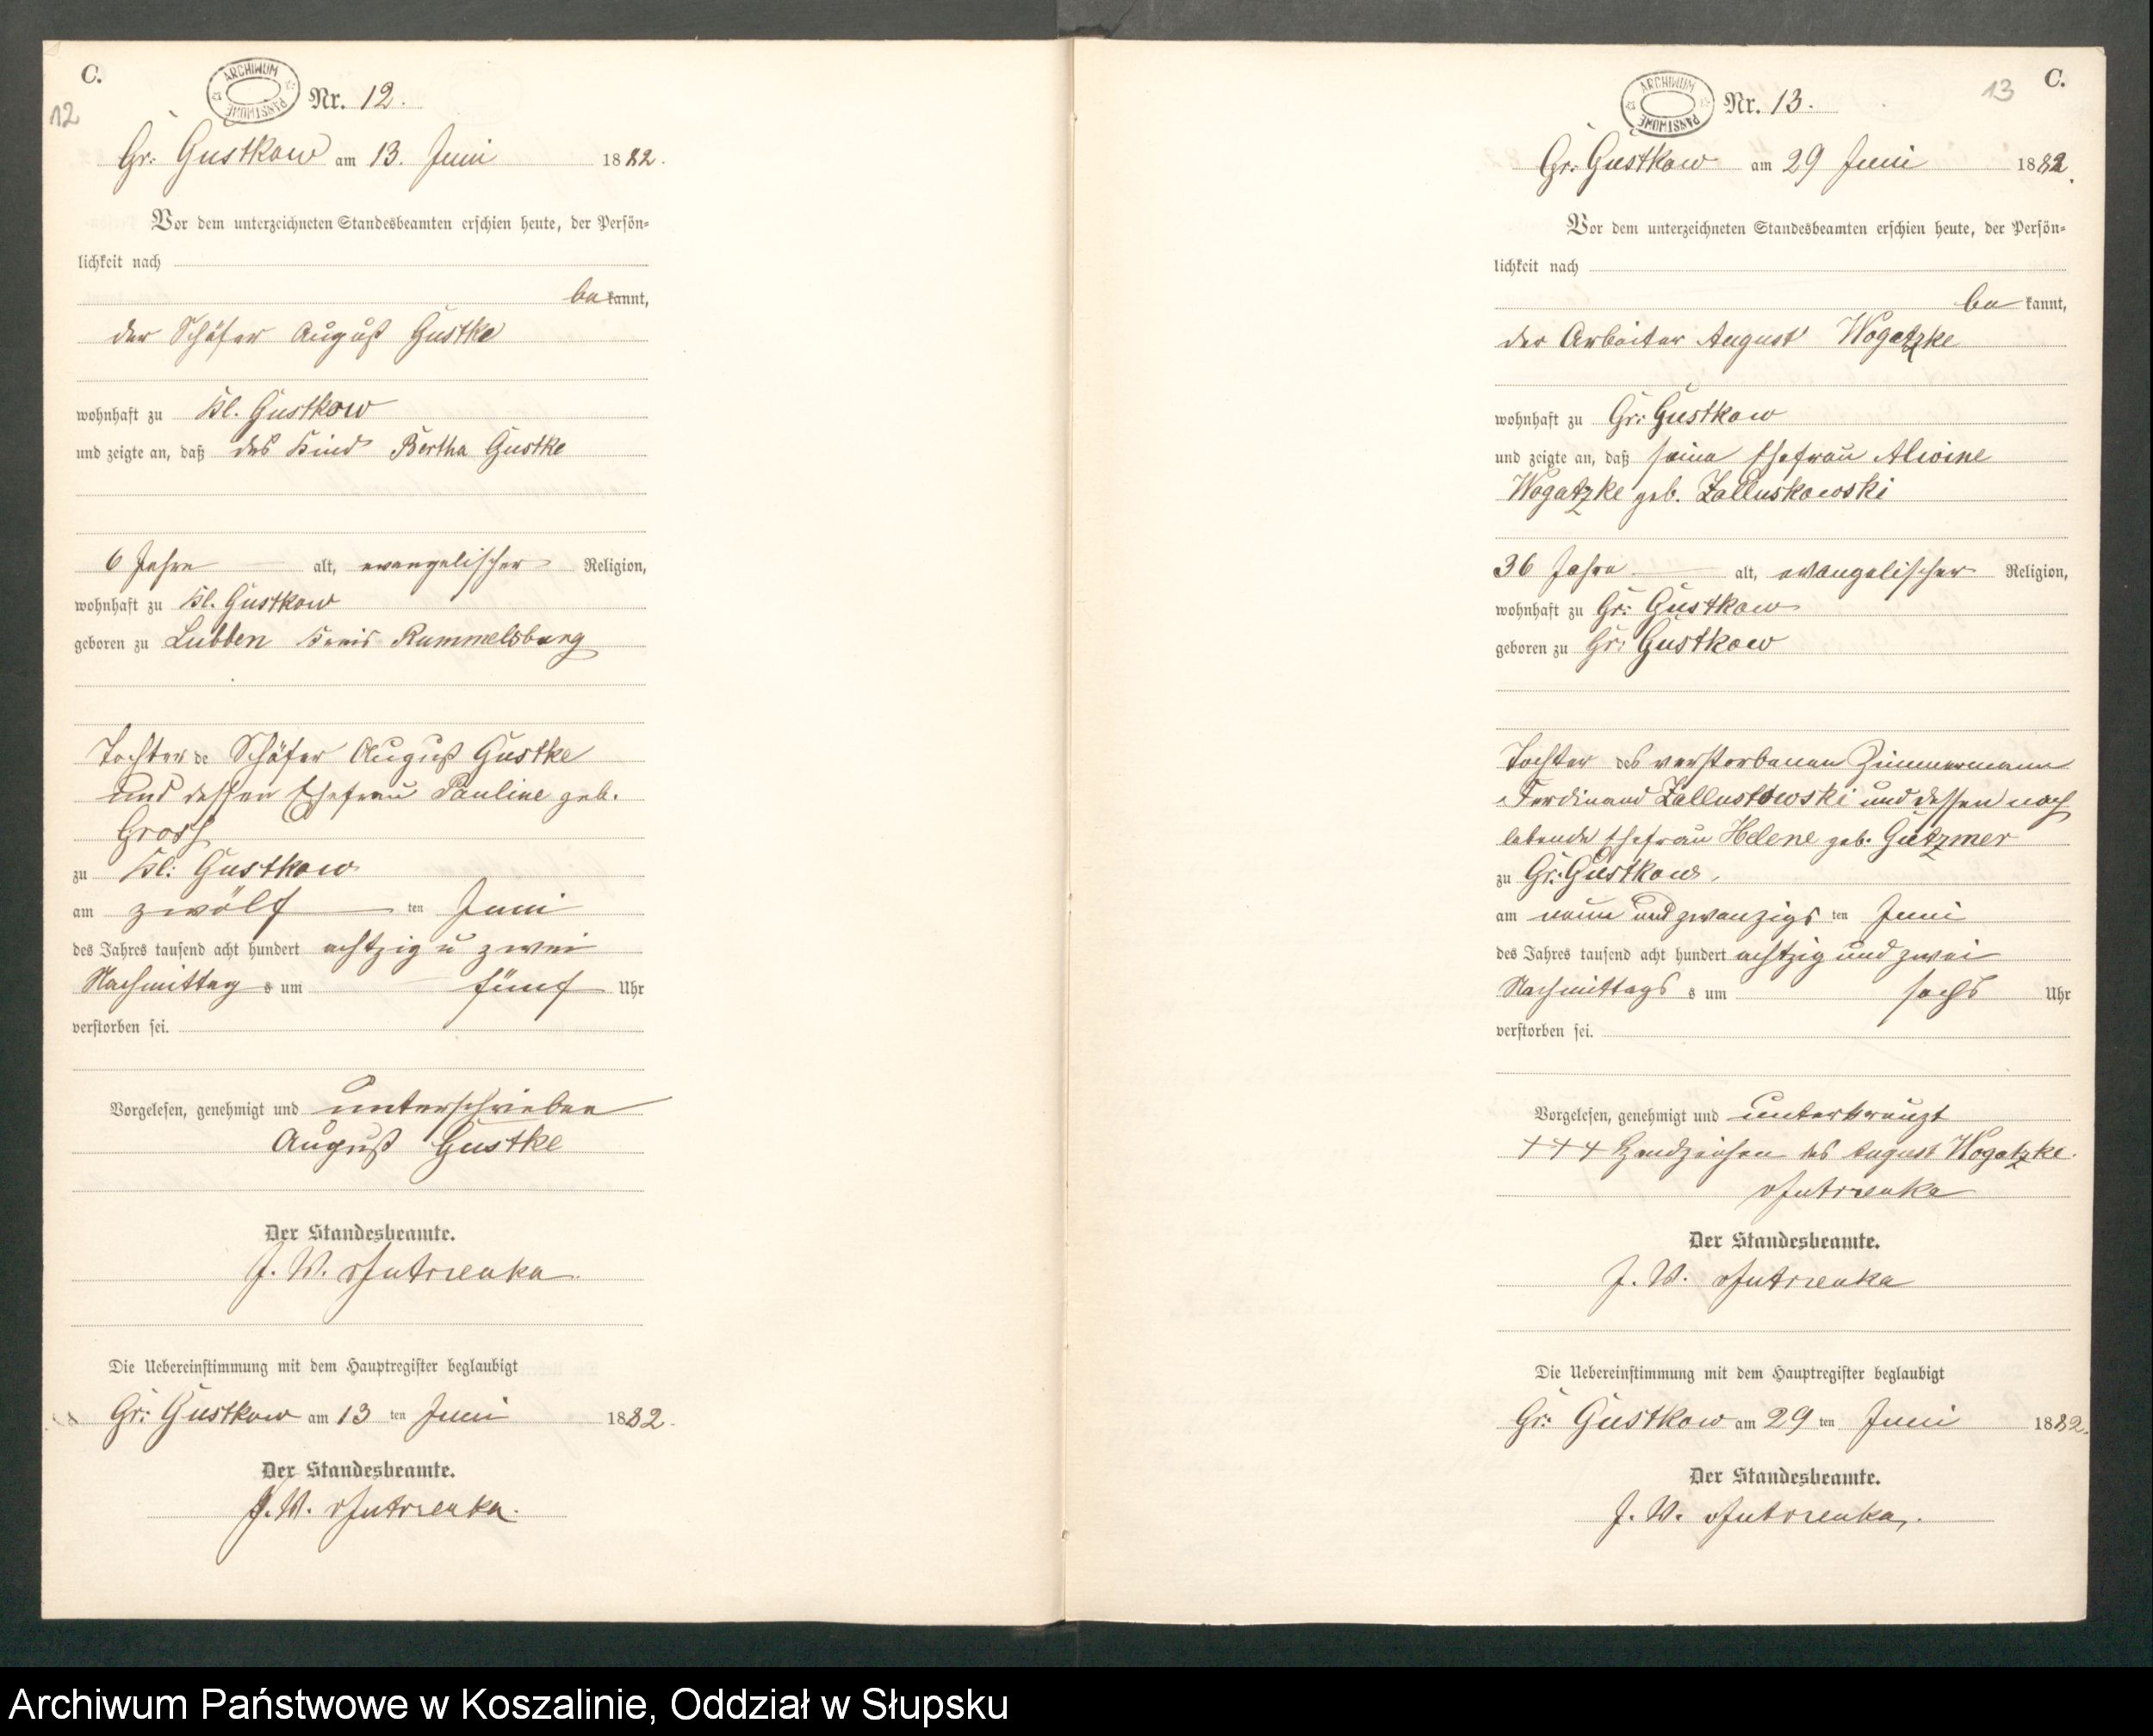 C.
12
ARCHIWUM PAŃSTWOWE
Nr. 12.
Gr: Gustkow am 13. Juni 1882.
Vor dem unterzeichneten Standesbeamten erschien heute, der Persön-
lichkeit nach
bekannt,
der Schäfer August Gustke
wohnhaft zu Kl. Gustkow
und zeigte an, daß das Kind Bertha Gustke
6 Jahre alt, evangelischer Religion,
wohnhaft zu Kl. Gustkow
geboren zu Lubben Kreis Rummelsburg
Tochter de Schäfer August Gustke
und dessen Ehefrau Pauline geb.
Gross
zu Kl: Gustkow
am zwölf ten Juni
des Jahres tausend acht hundert achtzig u zwei
Nachmittag s um fünf Uhr
verstorben sei.
Vorgelesen, genehmigt und unterschrieben
August Gustke
Der Standesbeamte.
J. W.
Die Uebereinstimmung mit dem Hauptregister beglaubigt
Gr: Gustkow am 13 ten Juni 1882.
Der Standesbeamte.
J. W.
13
C.
ARCHIWUM PAŃSTWOWE
Nr. 13.
Gr: Gustkow am 29 Juni 1882.
Vor dem unterzeichneten Standesbeamten erschien heute, der Persön-
lichkeit nach
bekannt,
der Arbeiter August Wogatzke
wohnhaft zu Gr: Gustkow
und zeigte an, daß seine Ehefrau Alwine
Wogatzke geb. Zalluskowski
36 Jahre alt, evangelischer Religion,
wohnhaft zu Gr: Gustkow
geboren zu Gr: Gustkow
Tochter des verstorbenen Zimmermann
Ferdinand Zalluskowski und dessen noch
lebende Ehefrau Helene geb. Gutzmer
zu Gr: Gustkow,
am neun und zwanzigs ten Juni
des Jahres tausend acht hundert achtzig und zwei
Nachmittags s um sechs Uhr
verstorben sei.
Vorgelesen, genehmigt und unterkreuzt
+++ Handzeichen des August Wogatzke.
Der Standesbeamte.
J. W.
Die Uebereinstimmung mit dem Hauptregister beglaubigt
Gr: Gustkow am 29 ten Juni 1882.
Der Standesbeamte.
J. W.
Archiwum Państwowe w Koszalinie, Oddział w Słupsku